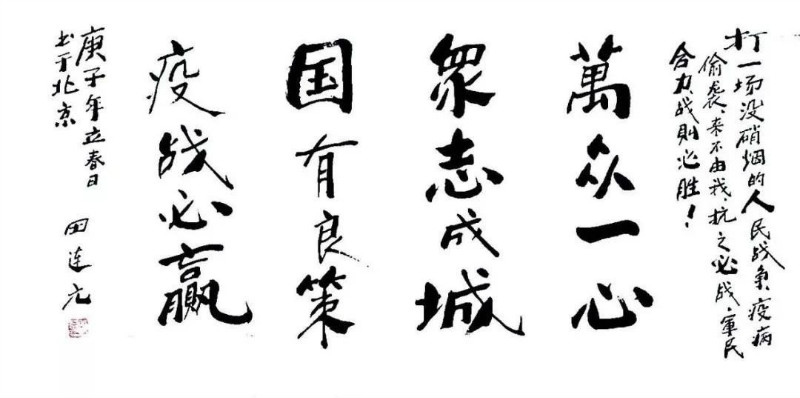 打一场没硝烟的人民战争,疫病
偷袭、来不由我、抗之必战、軍民
合力、战則必胜!
萬众一心
眾志成城
国有良策
疫战必赢
庚子年立春日
书于北京
田连元